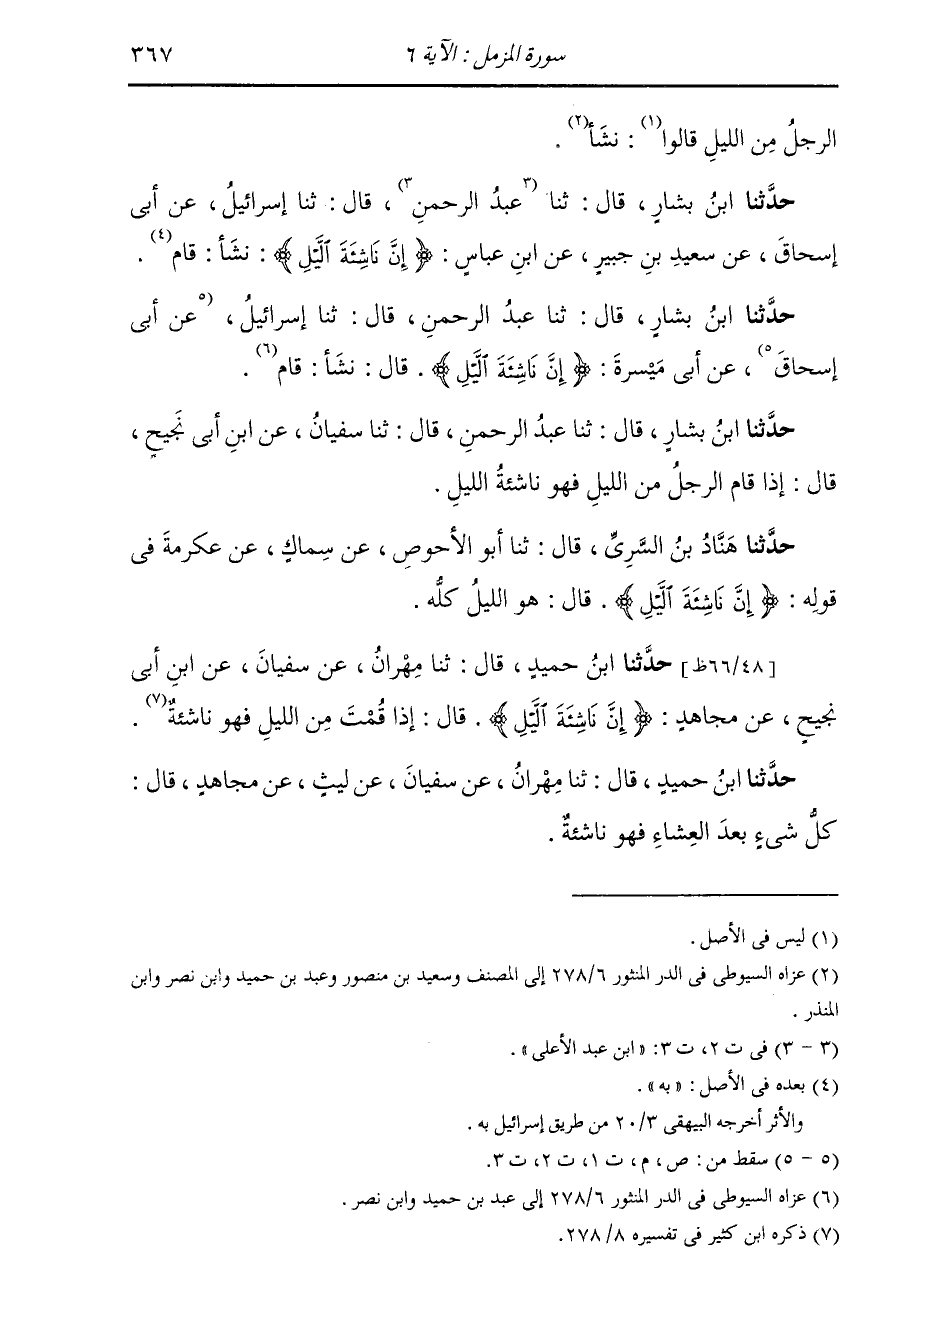 سورة المزمل : الآية ٦ ٣٦٧
الرجلُ مِن الليلِ قالوا(١) : نشَأ(٢) .
حدَّثنا ابنُ بشارٍ ، قال : ثنا (٣ عبدُ الرحمنِ ٣) ، قال : ثنا إسرائيلُ ، عن أبى
إسحاقَ ، عن سعيدِ بنِ جبيرٍ ، عن ابنِ عباسٍ : ﴿ إِنَّ نَاشِئَةَ ٱلَّيْلِ ﴾ : نشَأ : قام(٤) .
حدَّثنا ابنُ بشارٍ ، قال : ثنا عبدُ الرحمنِ ، قال : ثنا إسرائيلُ ، (٥ عن أبى
إسحاقَ ٥) ، عن أبى مَيْسرةَ : ﴿ إِنَّ نَاشِئَةَ ٱلَّيْلِ ﴾ . قال : نشَأ : قام(٦) .
حدَّثنا ابنُ بشارٍ ، قال : ثنا عبدُ الرحمنِ ، قال : ثنا سفيانُ ، عن ابنِ أبى نَجيحٍ ،
قال : إذا قام الرجلُ من الليلِ فهو ناشئةُ الليلِ .
حدَّثنا هَنَّادُ بنُ السَّرِىِّ ، قال : ثنا أبو الأحوصِ ، عن سِماكٍ ، عن عكرمةَ فى
قولِه : ﴿ إِنَّ نَاشِئَةَ ٱلَّيْلِ ﴾ . قال : هو الليلُ كلُّه .
[٦٦/٤٨ظ] حدَّثنا ابنُ حميدٍ ، قال : ثنا مِهْرانُ ، عن سفيانَ ، عن ابنِ أبى
نجيحٍ ، عن مجاهدٍ : ﴿ إِنَّ نَاشِئَةَ ٱلَّيْلِ ﴾ . قال : إذا قُمْتَ مِن الليلِ فهو ناشئةٌ(٧) .
حدَّثنا ابنُ حميدٍ ، قال : ثنا مِهْرانُ ، عن سفيانَ ، عن ليثٍ ، عن مجاهدٍ ، قال :
كلُّ شىءٍ بعدَ العِشاءِ فهو ناشئةٌ .
(١) ليس فى الأصل .
(٢) عزاه السيوطى فى الدر المنثور ٢٧٨/٦ إلى المصنف وسعيد بن منصور وعبد بن حميد وابن نصر وابن
المنذر .
(٣ - ٣) فى ت ٢، ت ٣: « ابن عبد الأعلى » .
(٤) بعده فى الأصل : « به » .
والأثر أخرجه البيهقى ٢٠/٣ من طريق إسرائيل به .
(٥ - ٥) سقط من : ص ، م ، ت ١، ت ٢، ت ٣.
(٦) عزاه السيوطى فى الدر المنثور ٢٧٨/٦ إلى عبد بن حميد وابن نصر .
(٧) ذكره ابن كثير فى تفسيره ٢٧٨/٨.